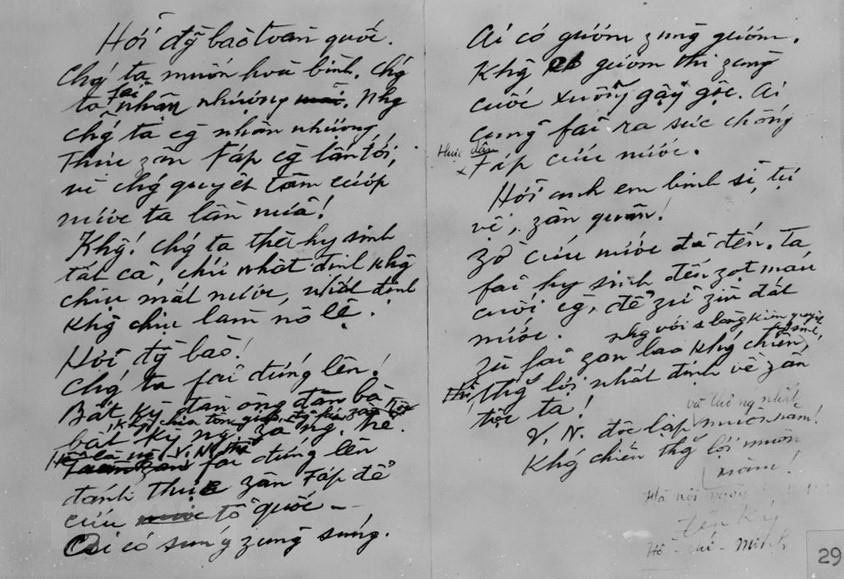 Hỡi đg̃ bào toàn quốc.
Chǵ ta muốn hoà bình. Chǵ
ta fải nhân nhượng. Nhg
chǵ ta cg̀ nhân nhượng,
Thực zân Fáp cg̀ lấn tới,
vì chǵ quyết tâm cướp
nước ta lần nữa!
Khg̃! chǵ ta thà hy sinh
tất cả, chứ nhất định khg̃
chịu mất nước, nhất định
khg̃ chịu làm nô lệ.
Hỡi đg̀ bào!
Chǵ ta fải đứng lên!
Bất kỳ đàn ông đàn bà
bất kỳ ng. zà ng. trẻ.
Hễ là ng. V.N. thì
fải đứng lên
đánh thực zân Fáp để
cứu tổ quốc –
Ai có súng zùng súng.
Ai có gươm zùng gươm.
Khg̃ có gươm thì zùng
cuốc xuổng gậy gộc. Ai
cũng fải ra sức chống
thực dân
Fáp cứu nước.
Hỡi anh em binh sĩ, tự
vệ, zân quân!
Zờ cứu nước đã đến. Ta
fải hy sinh đến zọt máu
cuối cg̀, để zữ zìn đất
nước.
Zù fải zan lao khǵ chiến,
nhg với 1 lòng kiên quyết
hy sinh,
thǵ lợi nhất định về zân
tộc ta!
và thống nhất
V. N. độc lập muôn năm!
Khǵ chiến thǵ lợi muôn
năm!
Hà nội ngày
Hồ - chí - Minh
29